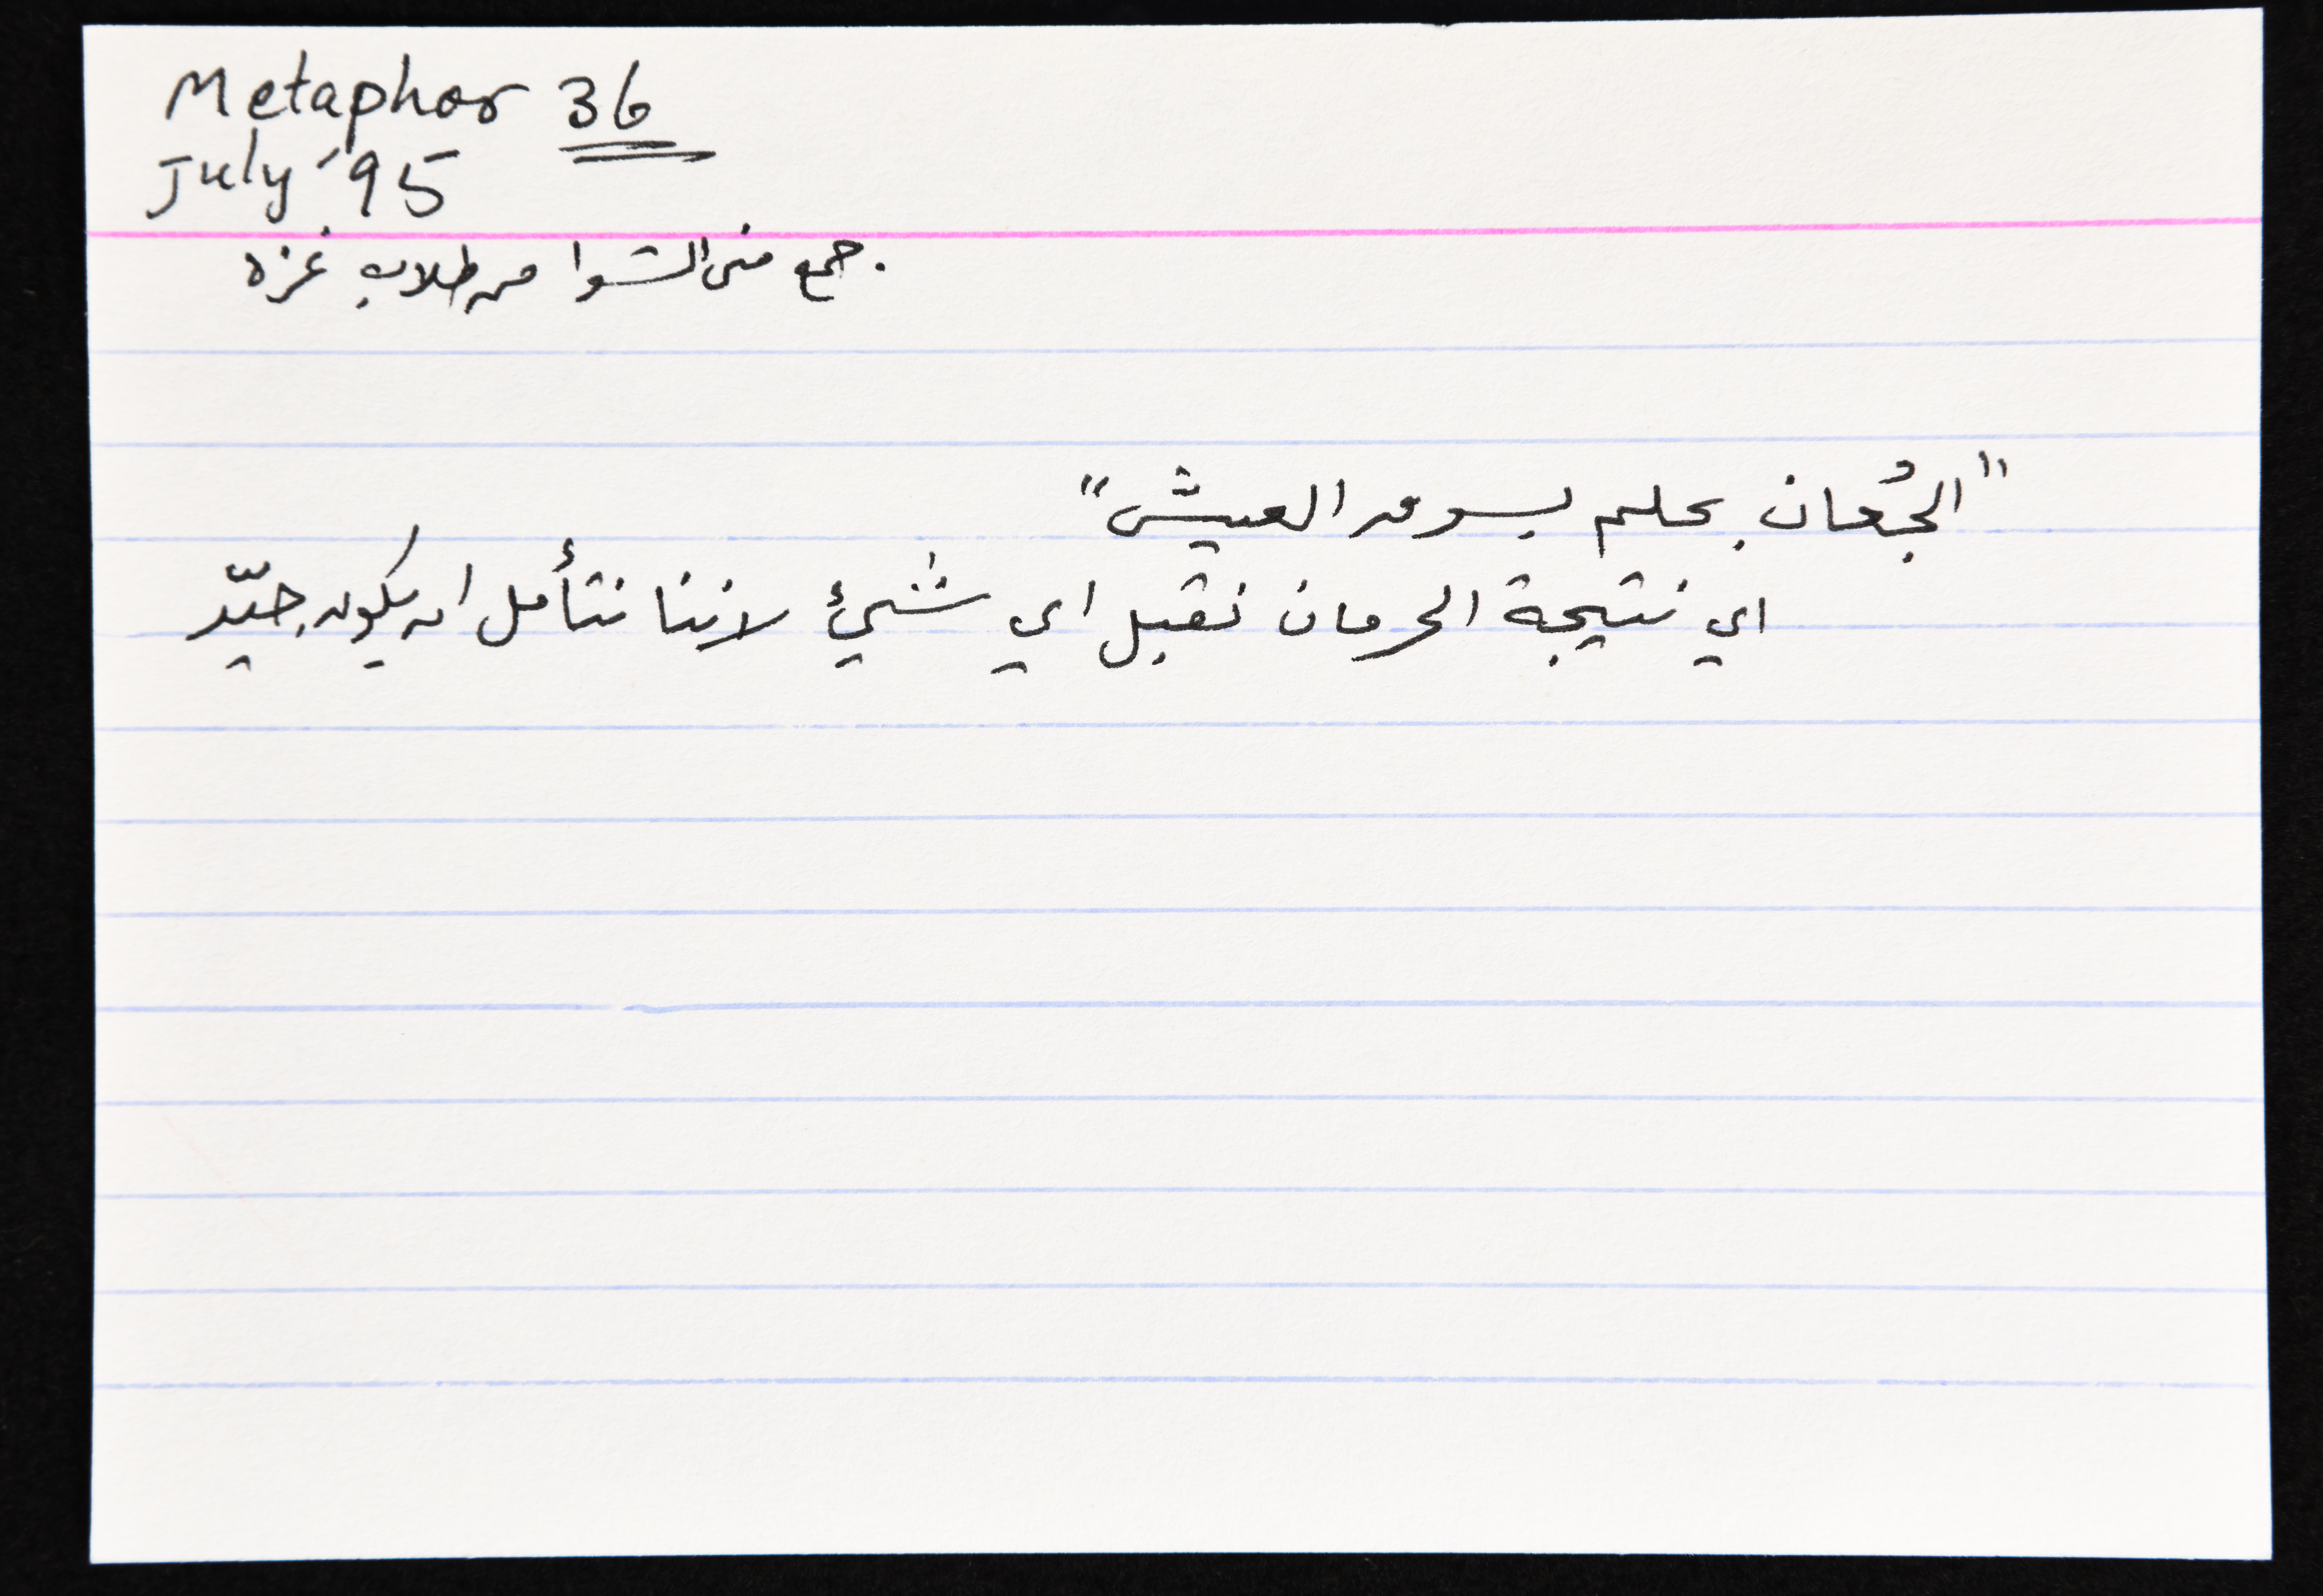 Metaphor 36
July '95
. جمع منى الشوا من طلاب غزه
"الجُعان بحلم بسوق العيش"
اي نتيجة الحرمان نقبل اي شيئ لاننا نتأمل ان يكون جيّد